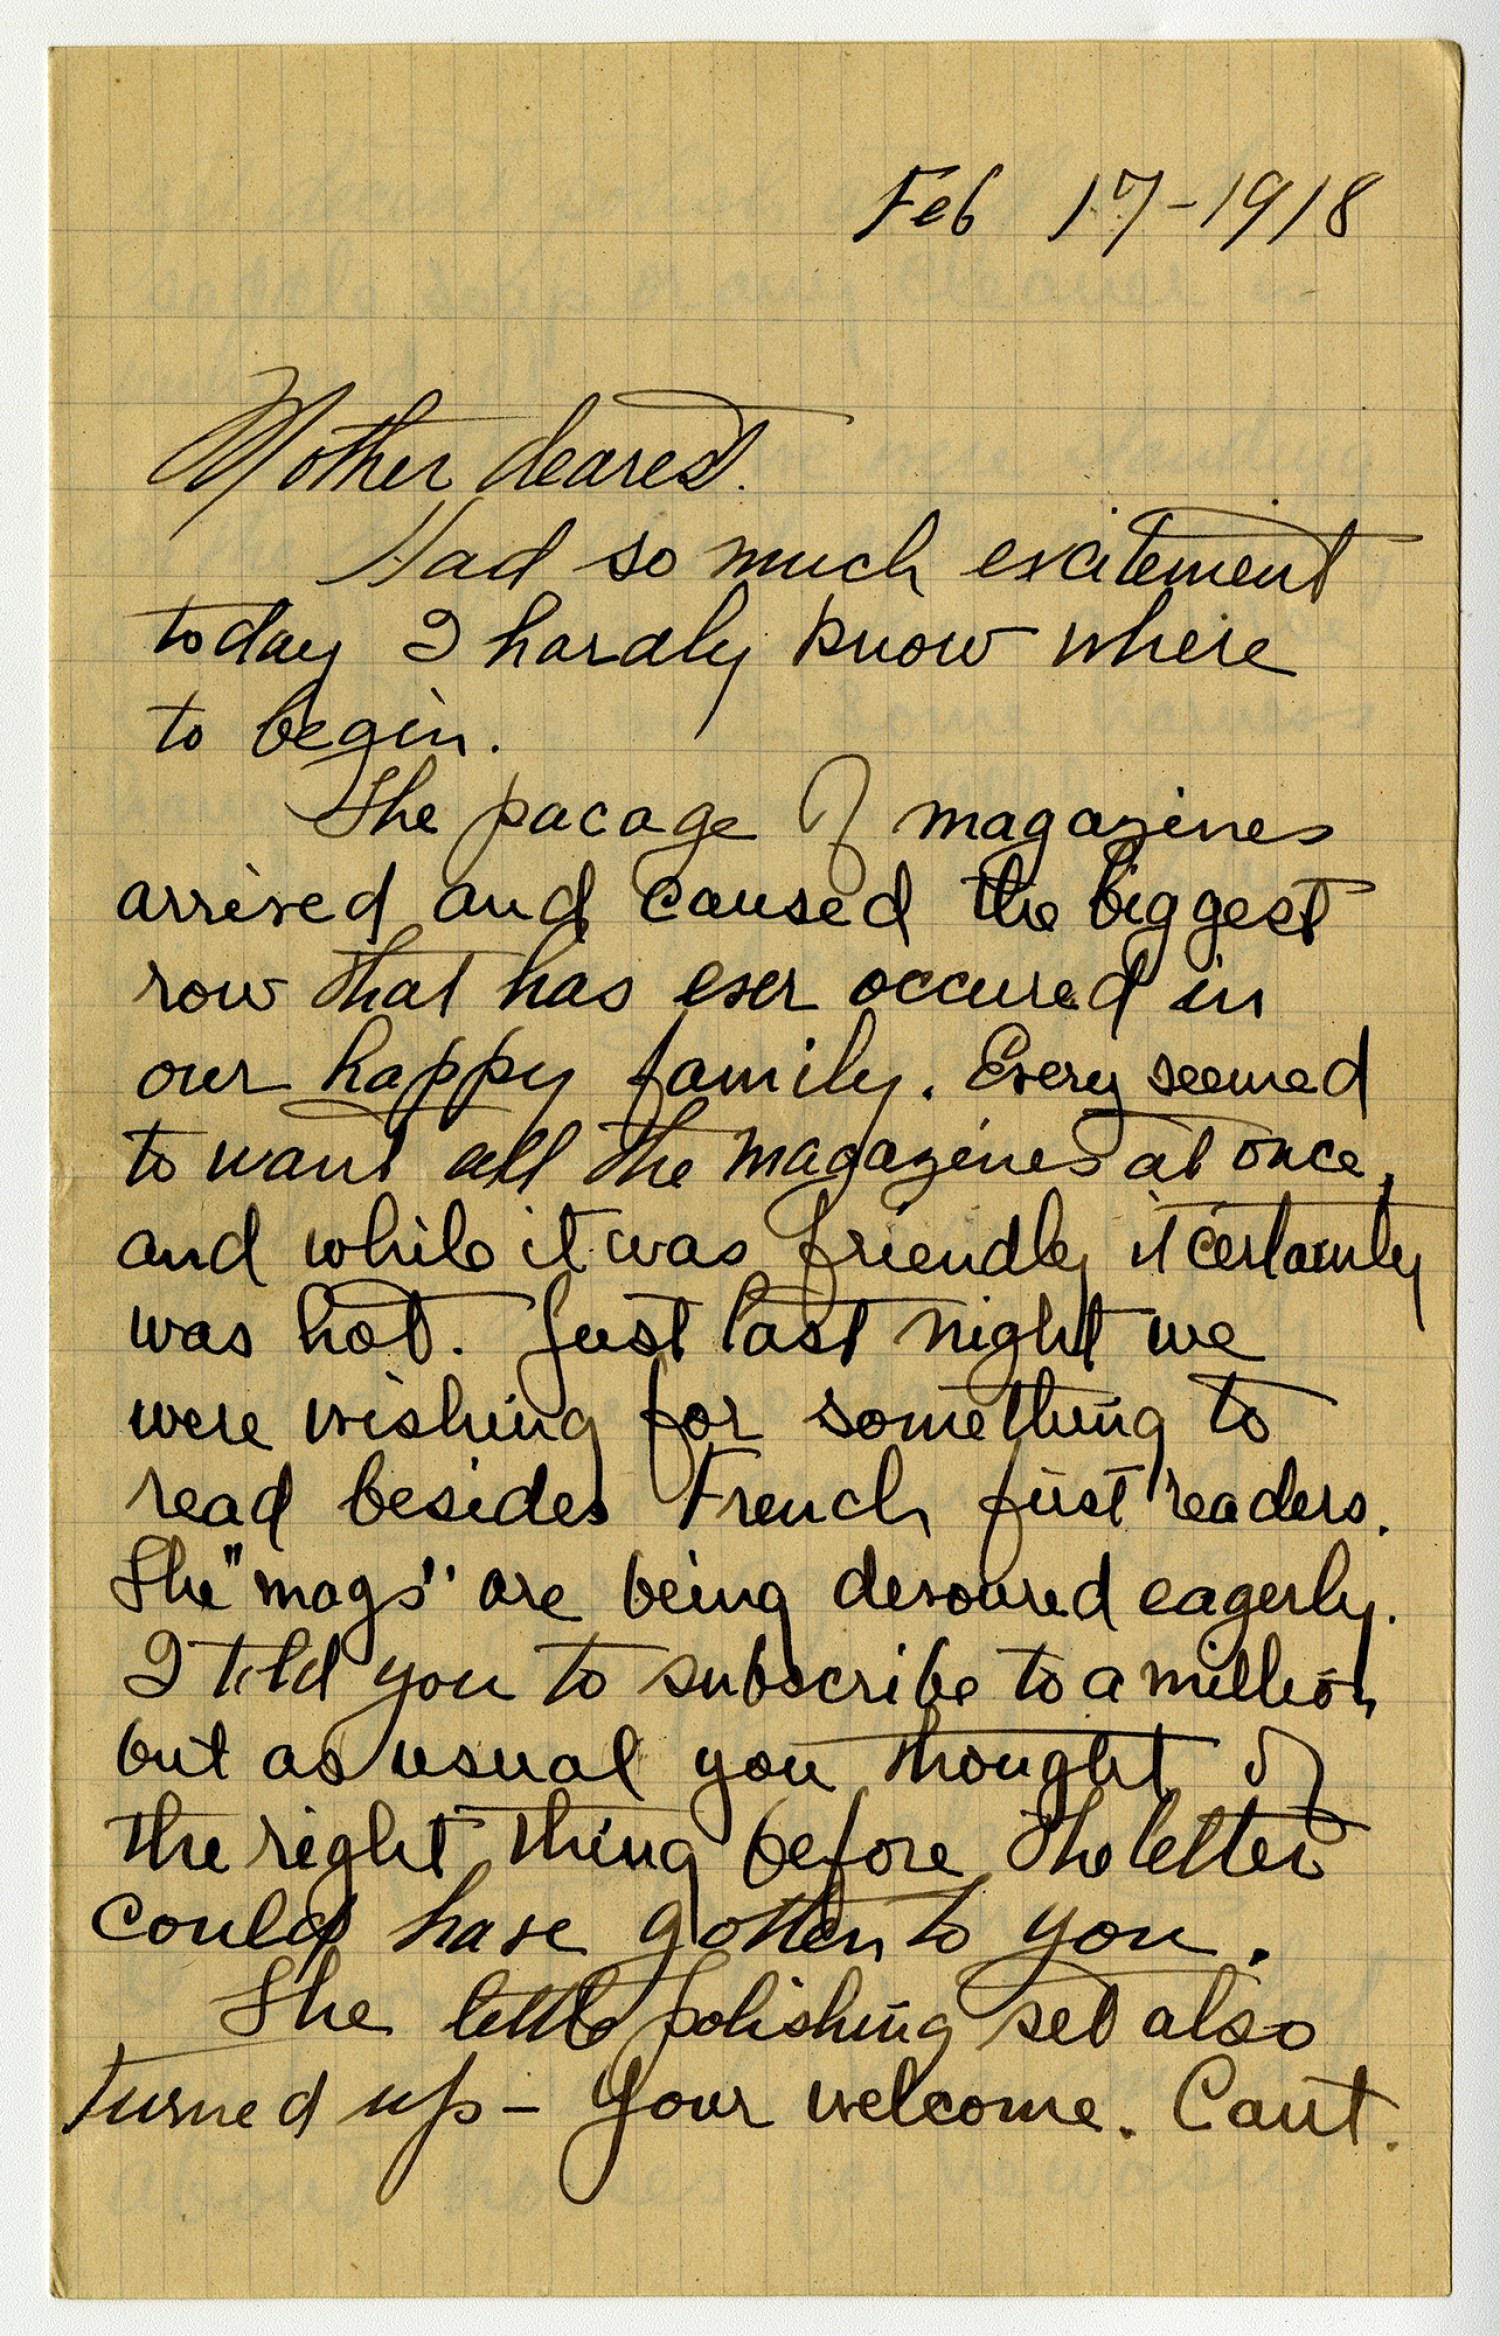 Feb 17-1918
Mother dearest.
Had so much excitement
today I hardly know where
to begin.
The pacage of magazines
arrived and caused the biggest
row that has ever occured in
our happy family. Every seemed
to want all the magazines at once,
and while it was friendly it certainly
was hot. Just last night we
were wishing for something to
read besides French first readers.
The "mags" are being devoured eagerly.
I told you to subscribe to a million
but as usual you thought of
the right thing before the letter
could have gotten to you.
The little polishing set also
turned up - your welcome. Cant.